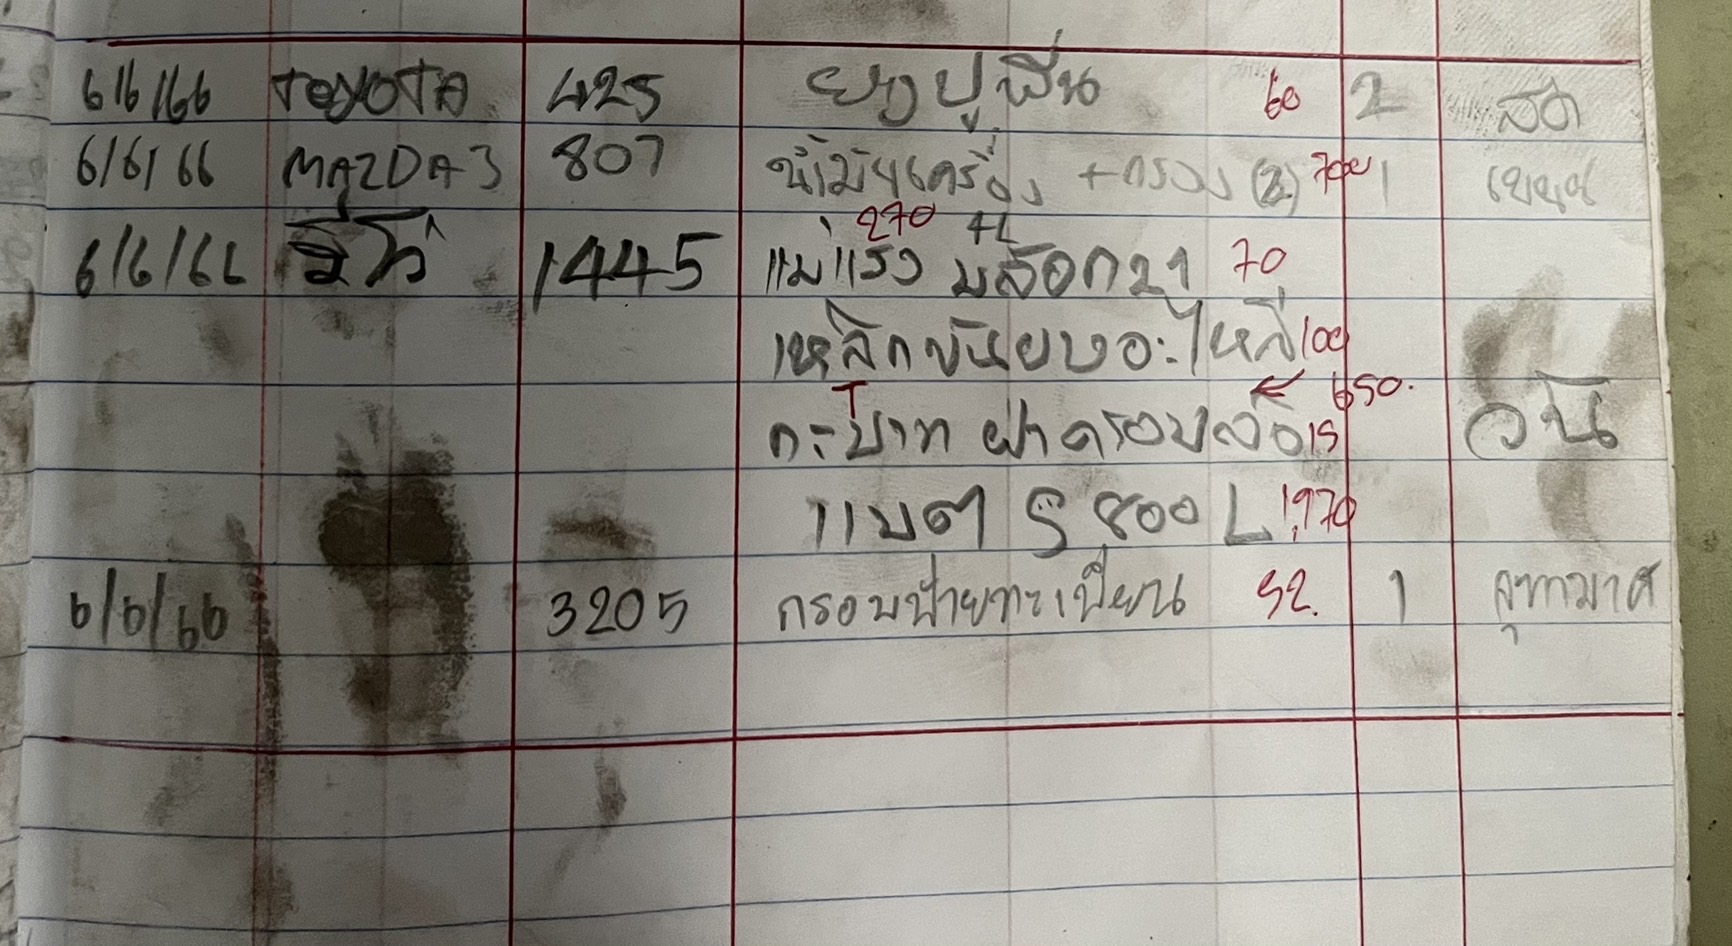 6/6/66 TOYOTA 425 ยางปูพื้น 60 2 สด
6/6/66 MAZDA 3 807 น้ำมันเครื่อง + กรอง (2) 700 1
270 4L
6/6/66 1445 แม่แรง บล๊อก 21 70
เหล็กขันยางอะไหล่ 100
← 650.
กะบาท ฝาครอบล้อ 15 วัน
แบต S 800 L 1,970
6/6/66 3205 กรอบป้ายทะเบียน 52. 1 จุฑามาศ